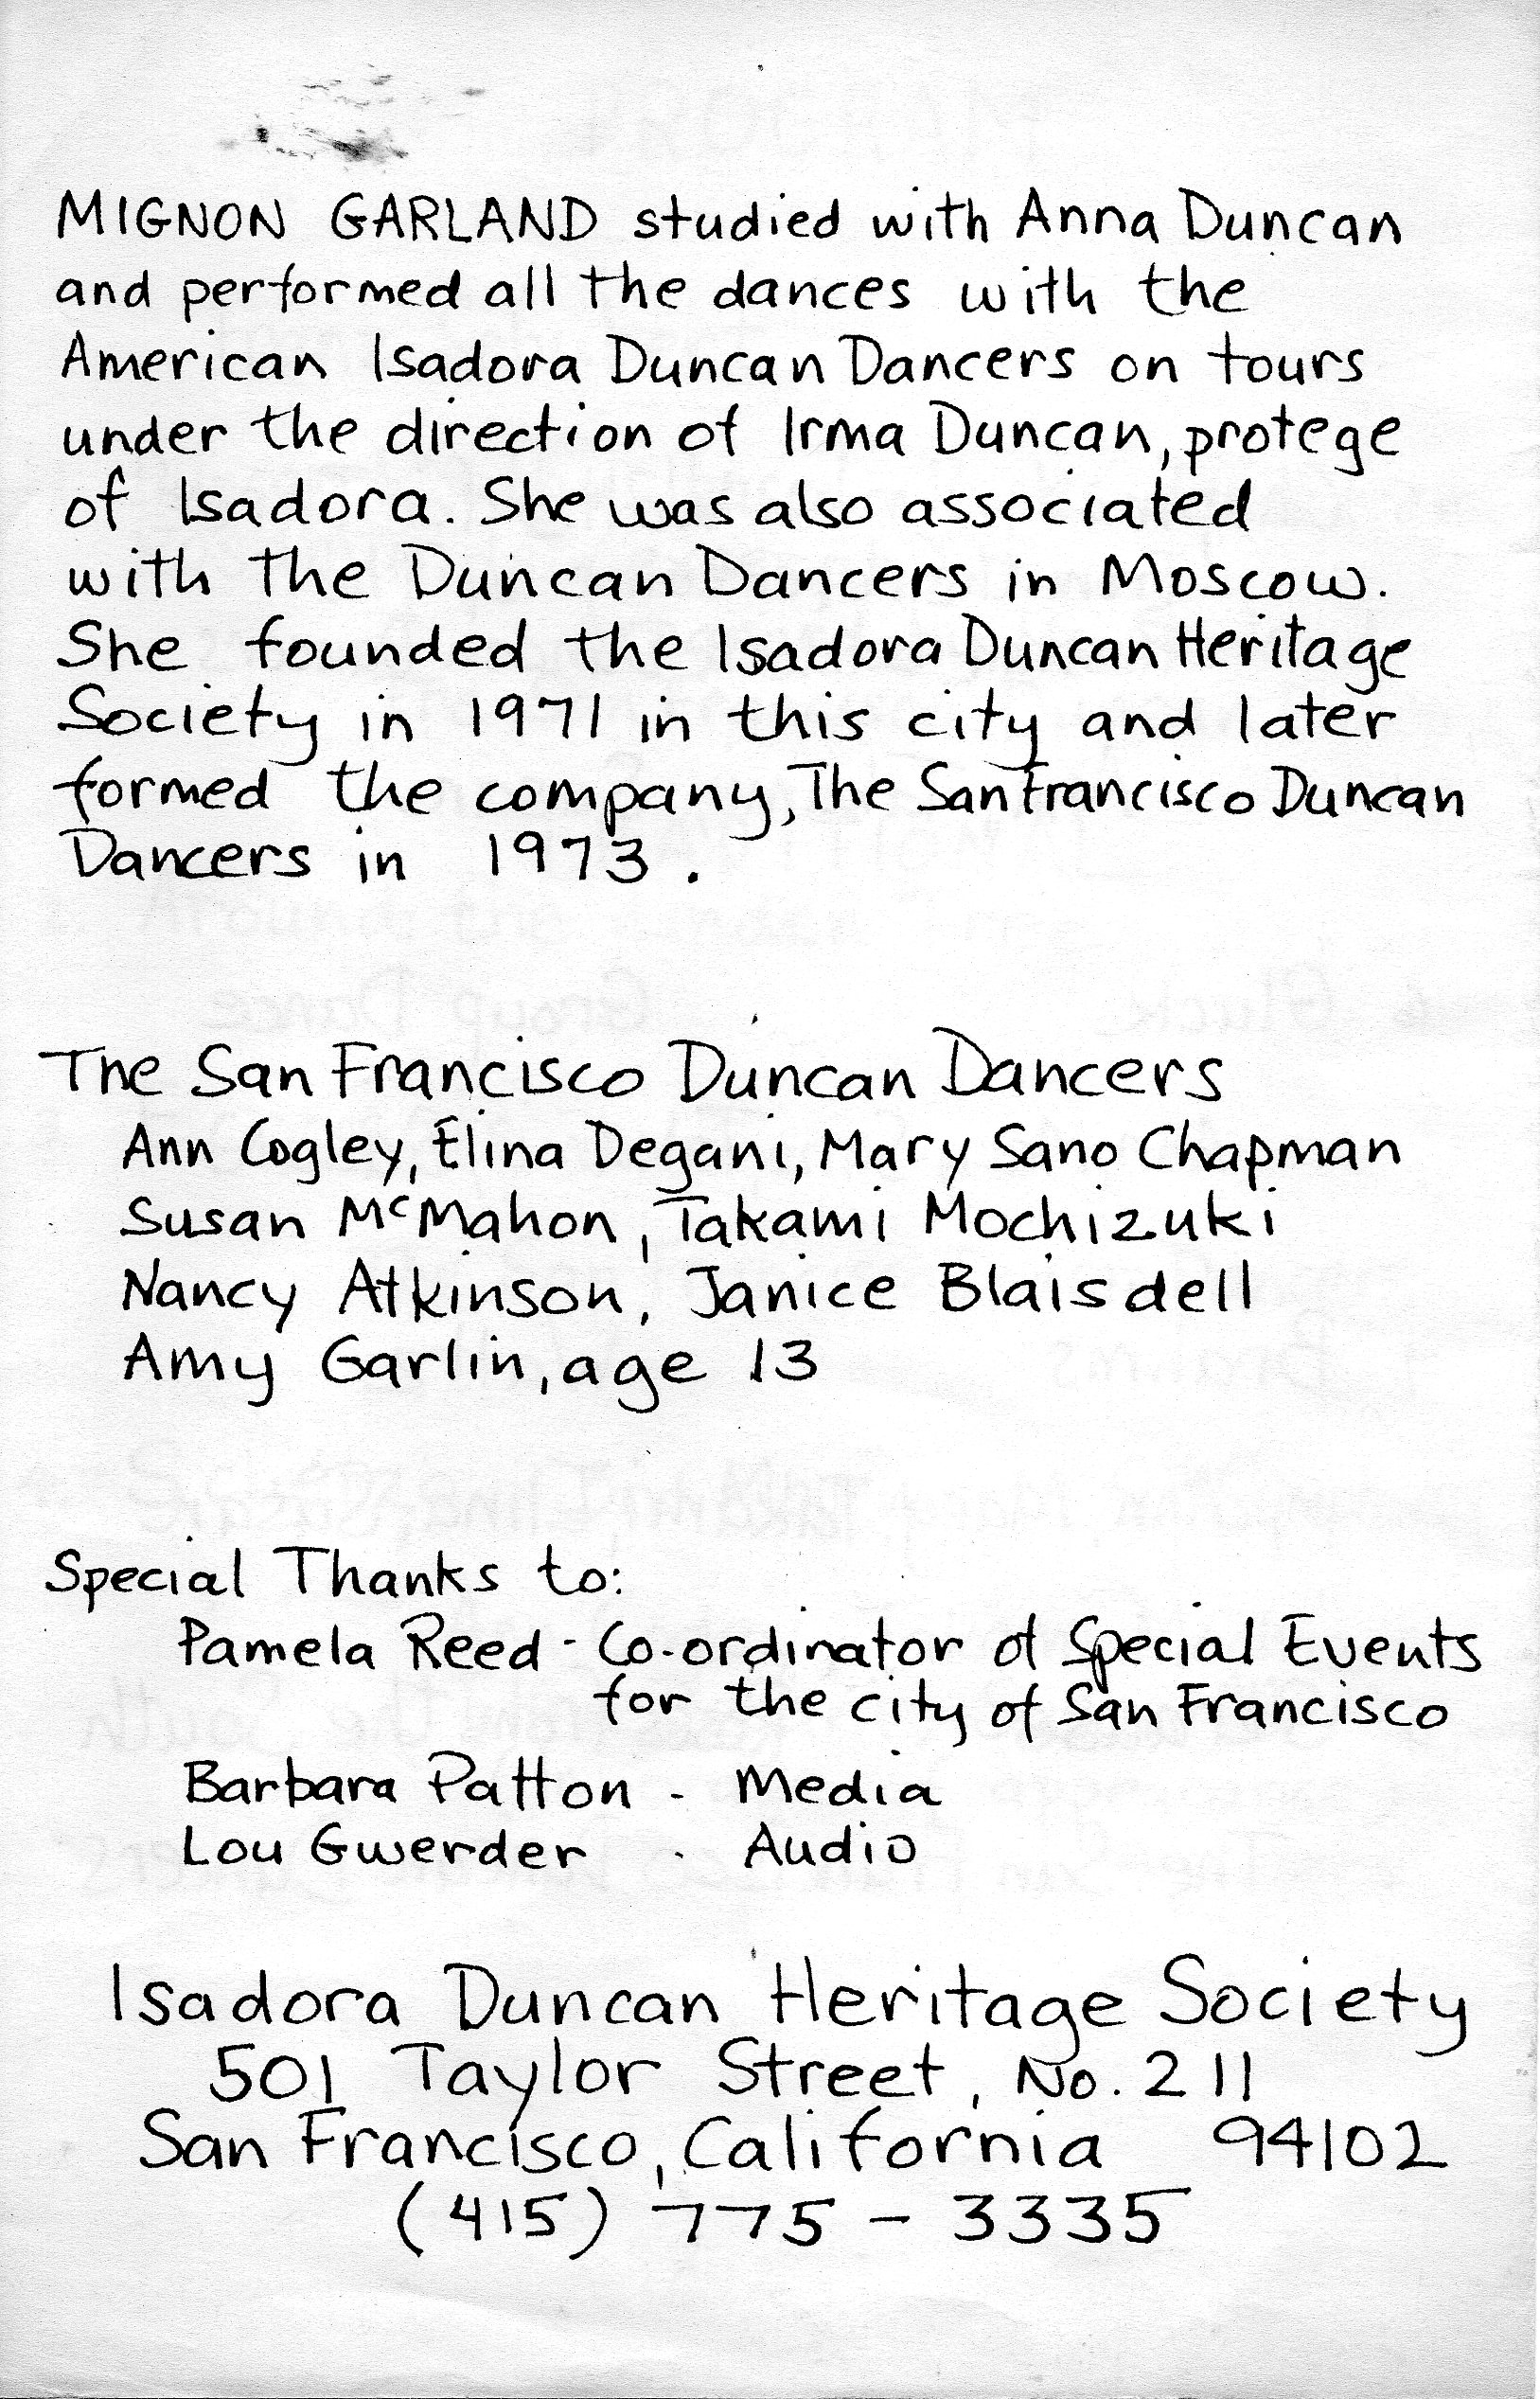 MIGNON GARLAND studied with Anna Duncan
and performed all the dances with the
American Isadora Duncan Dancers on tours
under the direction of Irma Duncan, protege
of Isadora. She was also associated
with the Duncan Dancers in Moscow.
She founded the Isadora Duncan Heritage
Society in 1971 in this city and later
formed the company, The San Francisco Duncan
Dancers in 1973.
The San Francisco Duncan Dancers
Ann Cogley, Elina Degani, Mary Sano Chapman
Susan McMahon, Takami Mochizuki
Nancy Atkinson, Janice Blaisdell
Amy Garlin, age 13
Special Thanks to:
Pamela Reed - Co-ordinator of Special Events
for the city of San Francisco
Barbara Patton - Media
Lou Gwerder - Audio
Isadora Duncan Heritage Society
501 Taylor Street, No. 211
San Francisco, California 94102
(415) 775-3335